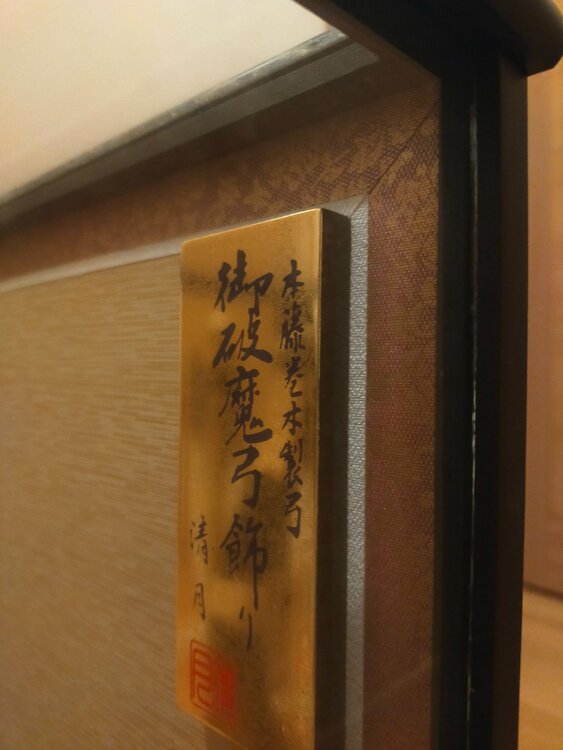 本藤巻木製弓
御破魔弓飾り
清月